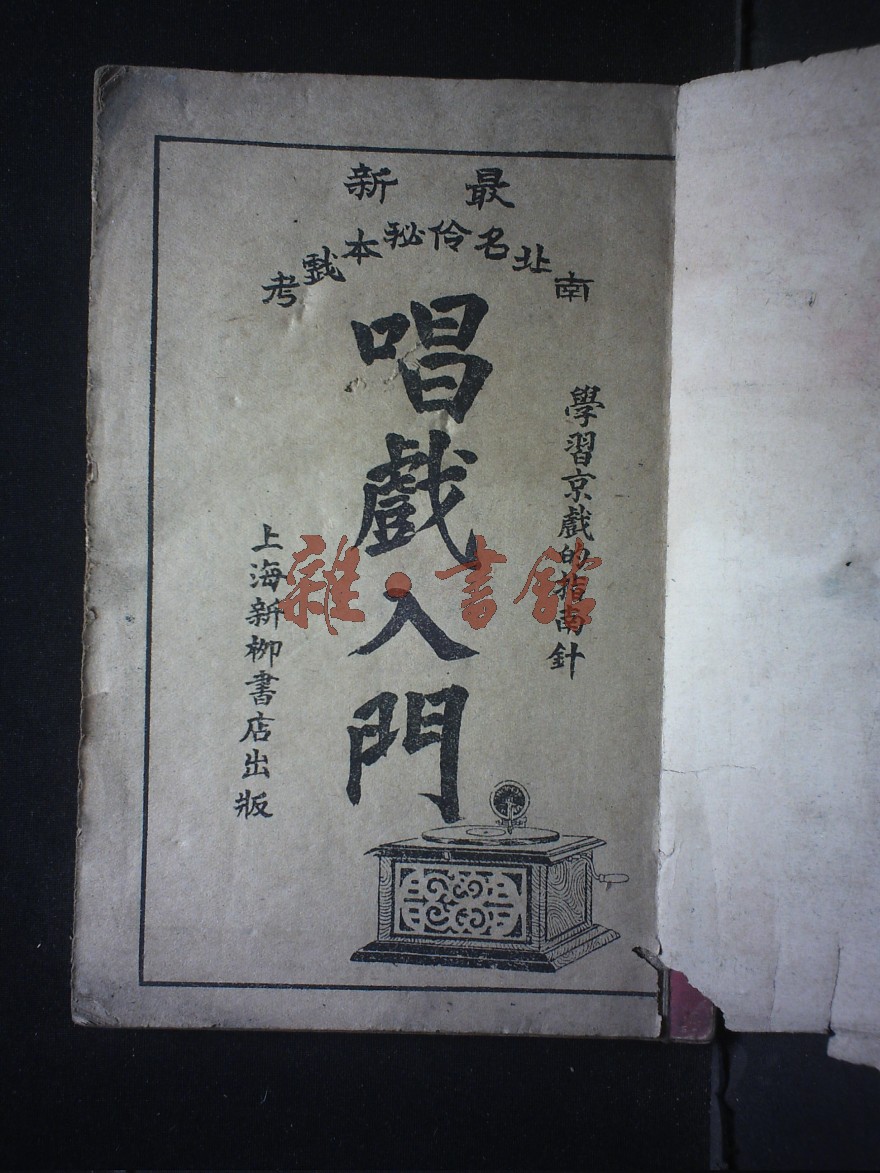 最新
南北名伶秘本戲考
學習京戲的指南針
唱戲入門
上海新柳書店出版
雜·書館